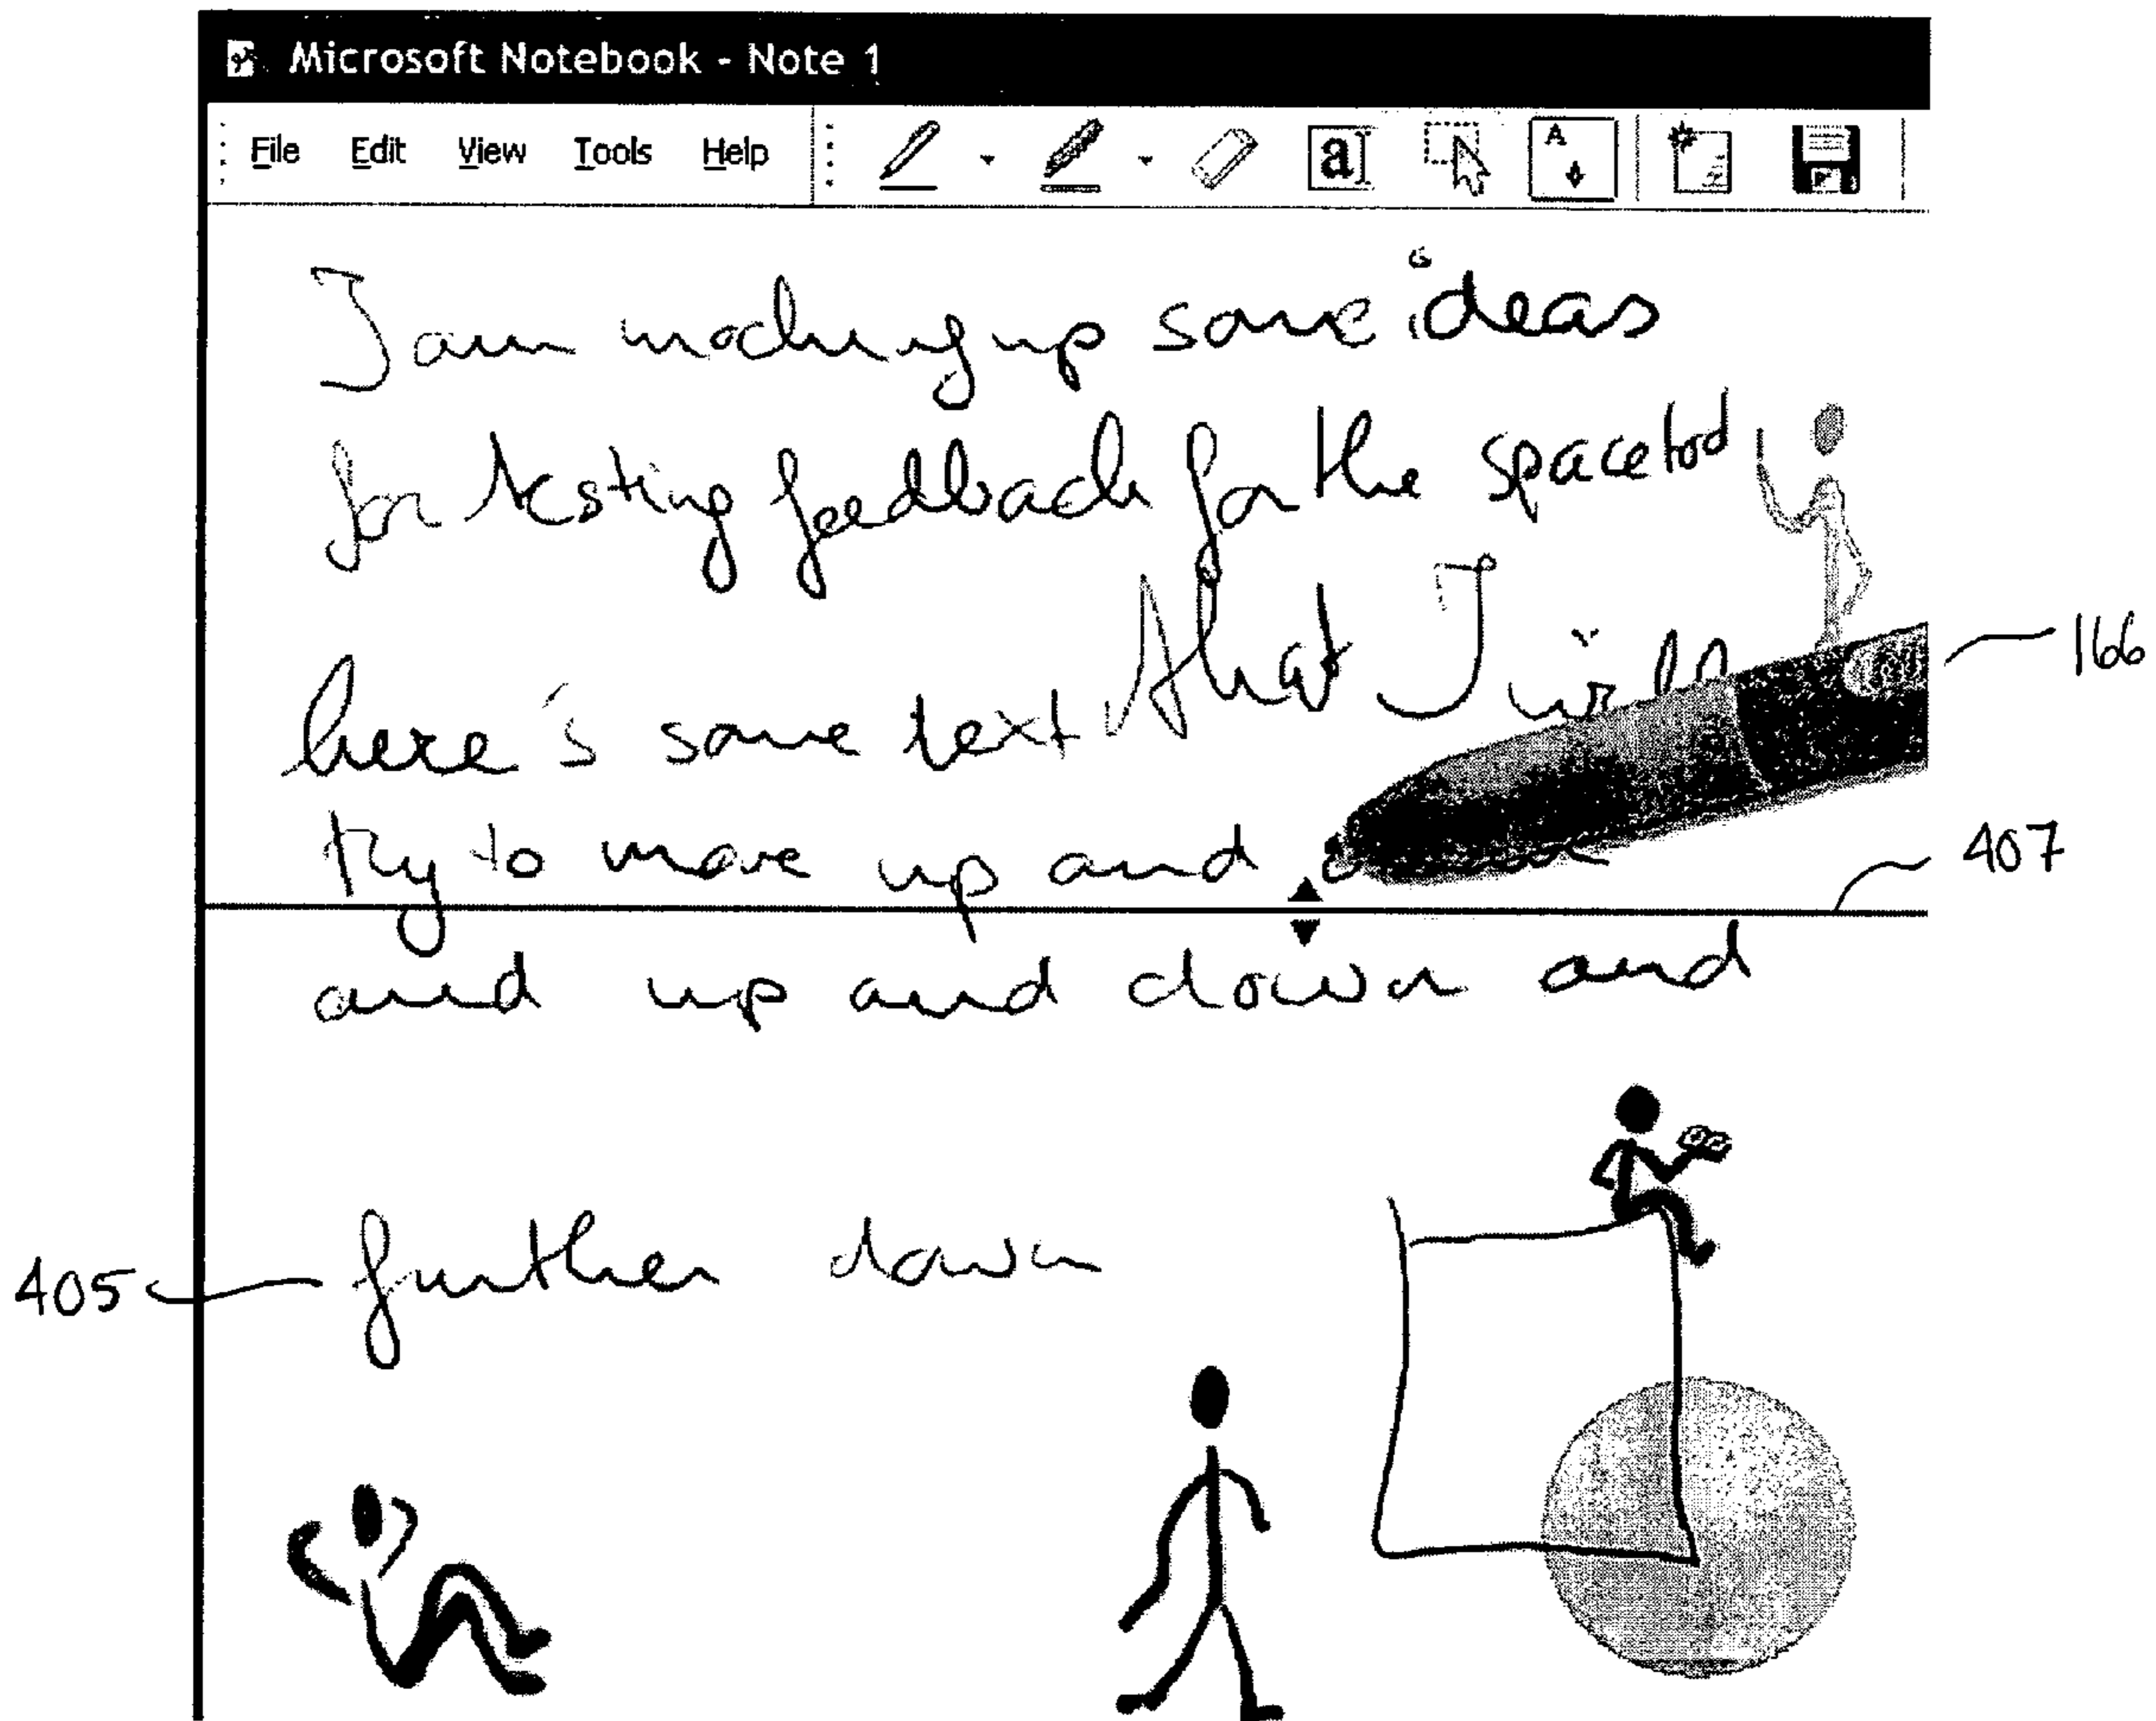 Microsoft Notebook - Note 1
File Edit View Tools Help
a
A
I am mocking up some ideas
for testing feedback for the spacetool
here's some text that I will
try to move up and
and up and down and
further down
166
407
405